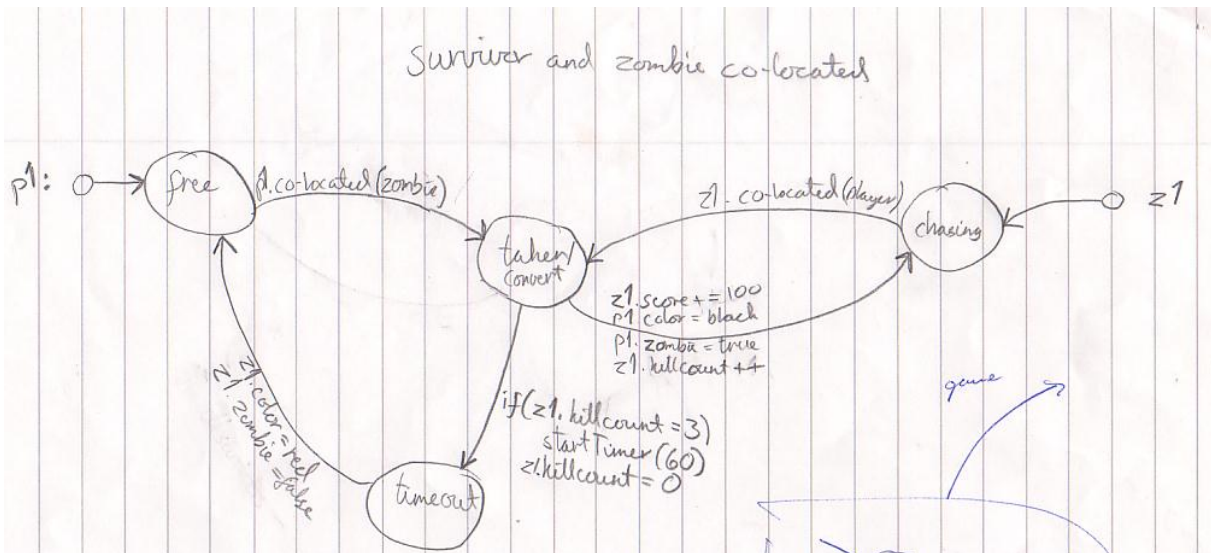 Surviver and zombie co-located
p1:
free
p1.co-located(zombie)
z1.co-located(player)
chasing
z1
taken/
convert
z1.score += 100
p1.color = black
p1.zombie = true
z1.killcount ++
game
if(z1.killcount = 3)
startTimer(60)
z1.killcount = 0
z1.color = red
z1.zombie = false
timeout